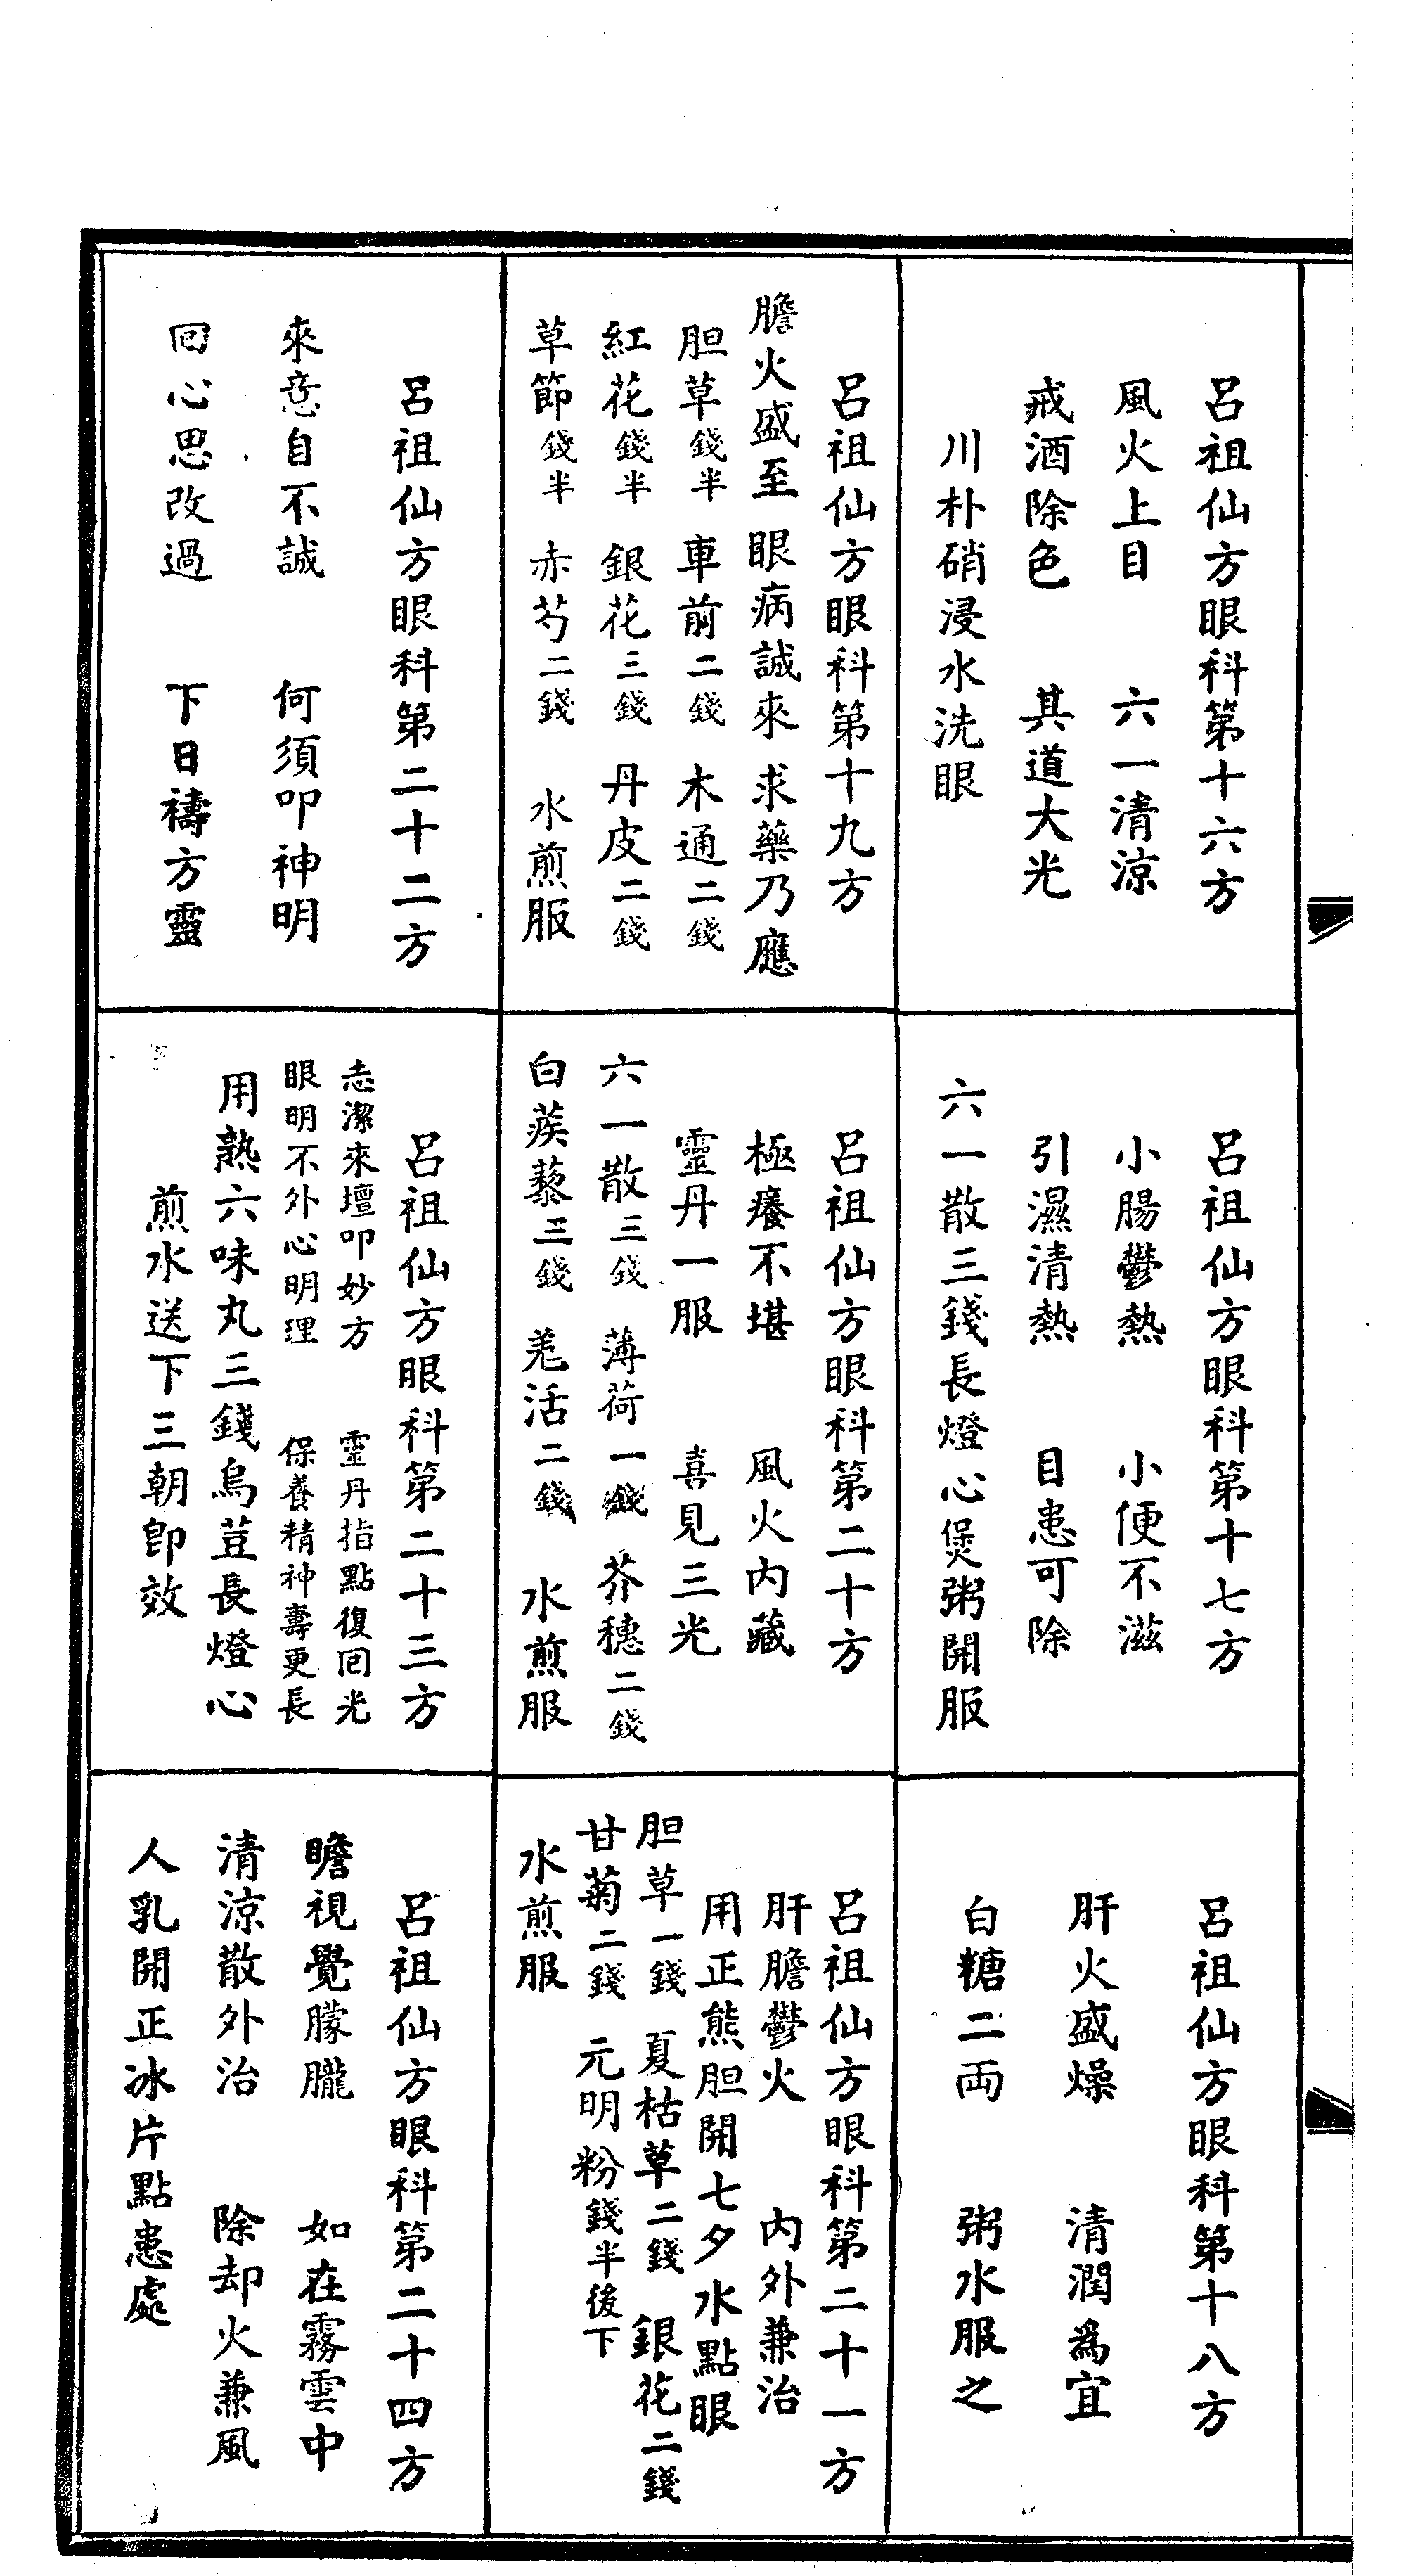 呂祖仙方眼科第十六方
風火上目　六一清涼
戒酒除色　其道大光
川朴硝浸水洗眼
呂祖仙方眼科第十七方
小腸鬱熱　小便不滋
引濕清熱　目患可除
六一散三錢長燈心煲粥開服
呂祖仙方眼科第十八方
肝火盛燥　清潤為宜
白糖二両　粥水服之
呂祖仙方眼科第十九方
膽火盛至　眼病誠來　求藥乃應
胆草錢半　車前二錢　木通二錢
紅花錢半　銀花三錢　丹皮二錢
草節錢半　赤芍二錢　水煎服
呂祖仙方眼科第二十方
極癢不堪　風火內藏
靈丹一服　喜見三光
六一散三錢　薄荷一錢　芥穗二錢
白蒺藜三錢　羌活二錢　水煎服
呂祖仙方眼科第二十一方
肝膽鬱火　內外兼治
用正熊胆開七夕水點眼
胆草一錢　夏枯草二錢　銀花二錢
甘菊二錢　元明粉錢半後下
水煎服
呂祖仙方眼科第二十二方
來意自不誠　何須叩神明
回心思改過　下日禱方靈
呂祖仙方眼科第二十三方
志潔來壇叩妙方　靈丹指點復回光
眼明不外心明理　保養精神壽更長
用熟六味丸三錢烏荳長燈心
煎水送下三朝即效
呂祖仙方眼科第二十四方
瞻視覺朦朧　如在霧雲中
清涼散外治　除却火兼風
人乳開正冰片點患處